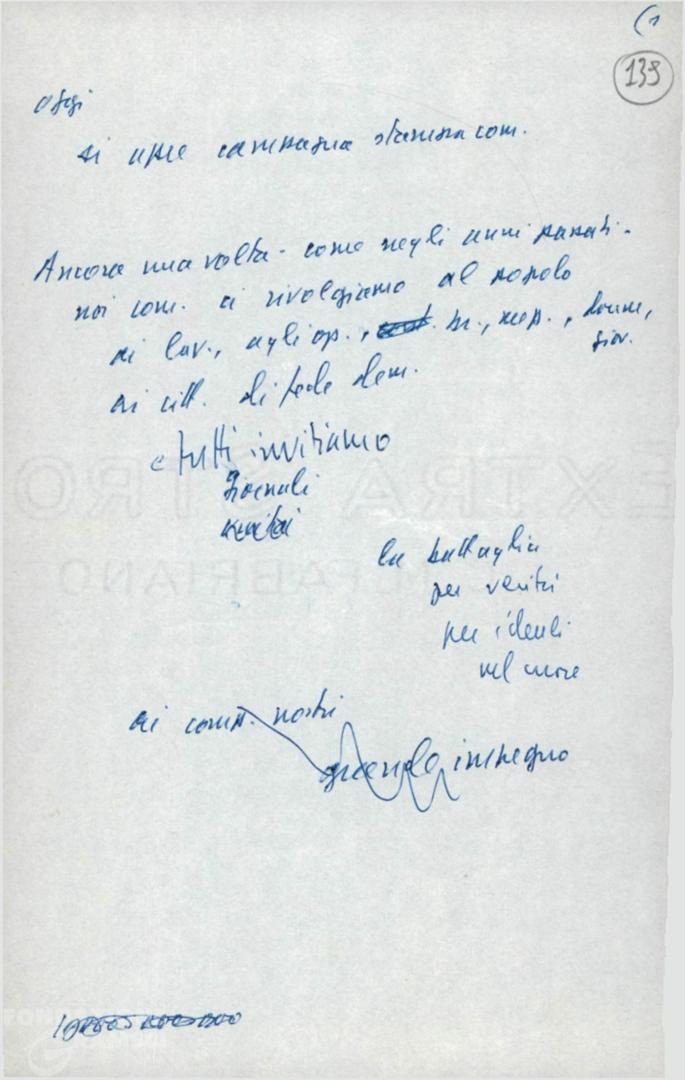 (1
139
oggi
si apre campagna stampa com.
Ancora una volta - come negli anni passati -
noi com. ci rivolgiamo al popolo
ai lav., agli op., in., imp., donne,
giov.
ai citt. di fede dem.
e tutti invitiamo
giornali
la battaglia
per verità
per ideali
nel cuore
ai comp. nostri
grande impegno
EXTRA STRO
M. FABRIANO